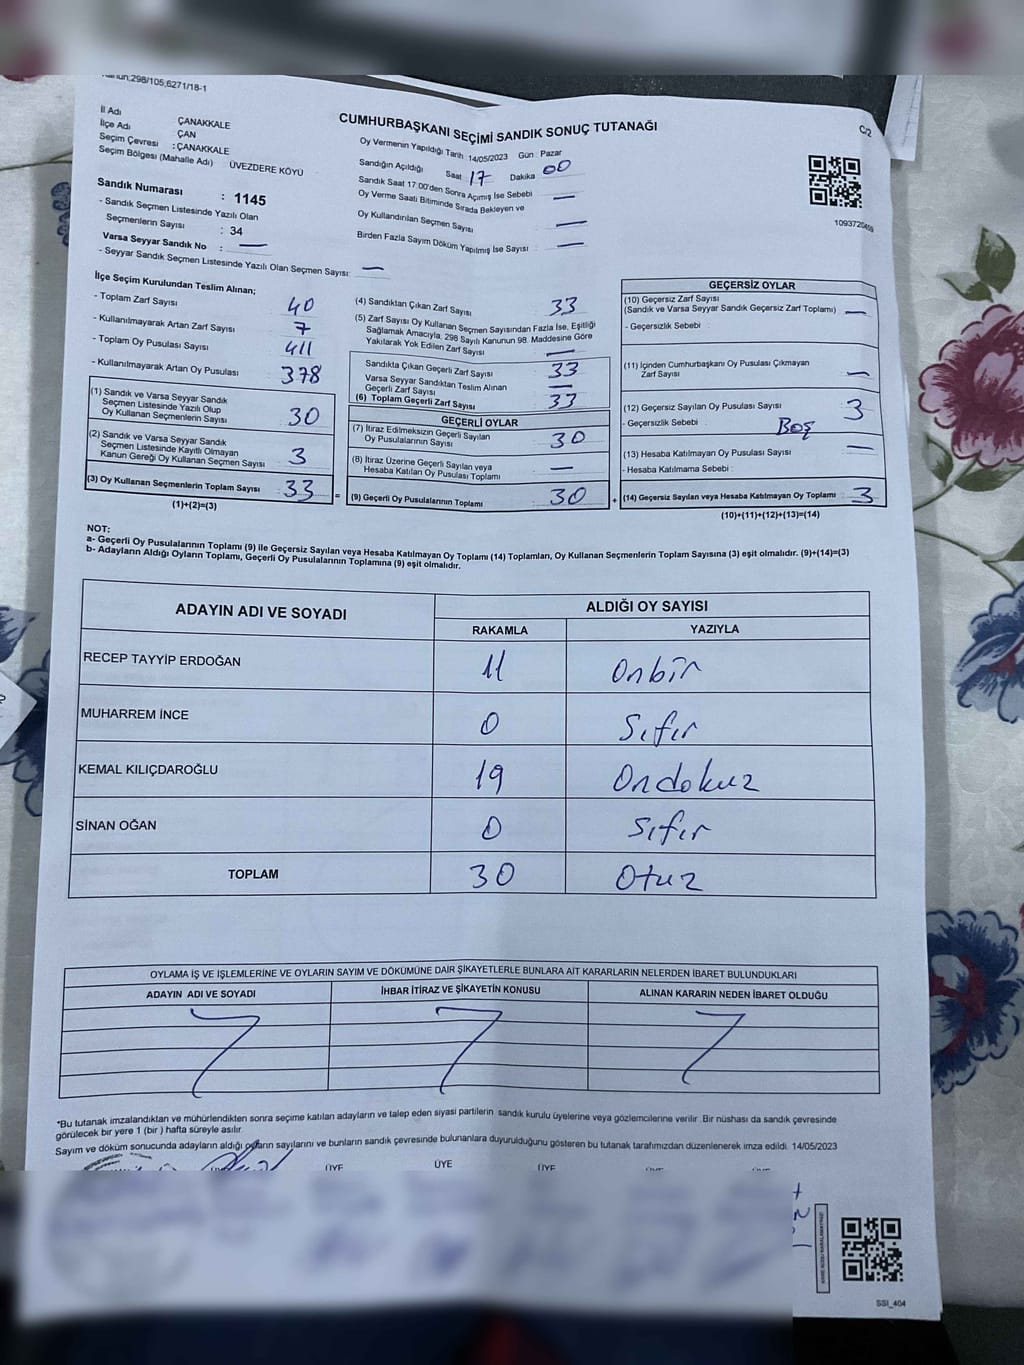 298/105;6271/18-1
C/2
CUMHURBAŞKANI SEÇİMİ SANDIK SONUÇ TUTANAĞI
İl Adı ÇANAKKALE
İlçe Adı ÇAN
Seçim Çevresi : ÇANAKKALE
Seçim Bölgesi (Mahalle Adı) ÜVEZDERE KÖYÜ
Oy Vermenin Yapıldığı Tarih 14/05/2023 Gün : Pazar
Sandığın Açıldığı Saat 17 Dakika 00
Sandık Saat 17:00'den Sonra Açımış İse Sebebi —
Oy Verme Saati Bitiminde Sırada Bekleyen ve
Oy Kullandırılan Seçmen Sayısı —
Birden Fazla Sayım Döküm Yapılmış İse Sayısı —
Sandık Numarası : 1145
- Sandık Seçmen Listesinde Yazılı Olan
Seçmenlerin Sayısı : 34
Varsa Seyyar Sandık No : —
- Seyyar Sandık Seçmen Listesinde Yazılı Olan Seçmen Sayısı: —
İlçe Seçim Kurulundan Teslim Alınan;
- Toplam Zarf Sayısı 40
- Kullanılmayarak Artan Zarf Sayısı 7
- Toplam Oy Pusulası Sayısı 411
- Kullanılmayarak Artan Oy Pusulası 378
(1) Sandık ve Varsa Seyyar Sandık
Seçmen Listesinde Yazılı Olup
Oy Kullanan Seçmenlerin Sayısı 30
(2) Sandık ve Varsa Seyyar Sandık
Seçmen Listesinde Kayıtlı Olmayan
Kanun Gereği Oy Kullanan Seçmen Sayısı 3
(3) Oy Kullanan Seçmenlerin Toplam Sayısı 33 =
(1)+(2)=(3)
(4) Sandıktan Çıkan Zarf Sayısı 33
(5) Zarf Sayısı Oy Kullanan Seçmen Sayısından Fazla İse, Eşitliği
Sağlamak Amacıyla; 298 Sayılı Kanunun 98. Maddesine Göre
Yakılarak Yok Edilen Zarf Sayısı —
Sandıkta Çıkan Geçerli Zarf Sayısı 33
Varsa Seyyar Sandıktan Teslim Alınan
Geçerli Zarf Sayısı —
(6) Toplam Geçerli Zarf Sayısı 33
GEÇERLİ OYLAR
(7) İtiraz Edilmeksizin Geçerli Sayılan
Oy Pusulalarının Sayısı 30
(8) İtiraz Üzerine Geçerli Sayılan veya
Hesaba Katılan Oy Pusulası Toplamı —
(9) Geçerli Oy Pusulalarının Toplamı 30 +
GEÇERSİZ OYLAR
(10) Geçersiz Zarf Sayısı
(Sandık ve Varsa Seyyar Sandık Geçersiz Zarf Toplamı) —
- Geçersizlik Sebebi :
(11) İçinden Cumhurbaşkanı Oy Pusulası Çıkmayan
Zarf Sayısı —
(12) Geçersiz Sayılan Oy Pusulası Sayısı 3
- Geçersizlik Sebebi : Boş
(13) Hesaba Katılmayan Oy Pusulası Sayısı —
- Hesaba Katılmama Sebebi :
(14) Geçersiz Sayılan veya Hesaba Katılmayan Oy Toplamı 3
(10)+(11)+(12)+(13)=(14)
NOT:
a- Geçerli Oy Pusulalarının Toplamı (9) ile Geçersiz Sayılan veya Hesaba Katılmayan Oy Toplamı (14) Toplamları, Oy Kullanan Seçmenlerin Toplam Sayısına (3) eşit olmalıdır. (9)+(14)=(3)
b- Adayların Aldığı Oyların Toplamı, Geçerli Oy Pusulalarının Toplamına (9) eşit olmalıdır.
ADAYIN ADI VE SOYADI ALDIĞI OY SAYISI
RAKAMLA YAZIYLA
RECEP TAYYİP ERDOĞAN 11 Onbir
MUHARREM İNCE 0 Sıfır
KEMAL KILIÇDAROĞLU 19 Ondokuz
SİNAN OĞAN 0 Sıfır
TOPLAM 30 Otuz
OYLAMA İŞ VE İŞLEMLERİNE VE OYLARIN SAYIM VE DÖKÜMÜNE DAİR ŞİKAYETLERLE BUNLARA AİT KARARLARIN NELERDEN İBARET BULUNDUKLARI
ADAYIN ADI VE SOYADI İHBAR İTİRAZ VE ŞİKAYETİN KONUSU ALINAN KARARIN NEDEN İBARET OLDUĞU
*Bu tutanak imzalandıktan ve mühürlendikten sonra seçime katılan adayların ve talep eden siyasi partilerin sandık kurulu üyelerine veya gözlemcilerine verilir. Bir nüshası da sandık çevresinde
görülecek bir yere 1 (bir) hafta süreyle asılır.
Sayım ve döküm sonucunda adayların aldığı oyların sayılarını ve bunların sandık çevresinde bulunanlara duyurulduğunu gösteren bu tutanak tarafımızdan düzenlenerek imza edildi. 14/05/2023
ÜYE ÜYE ÜYE
SSI_404